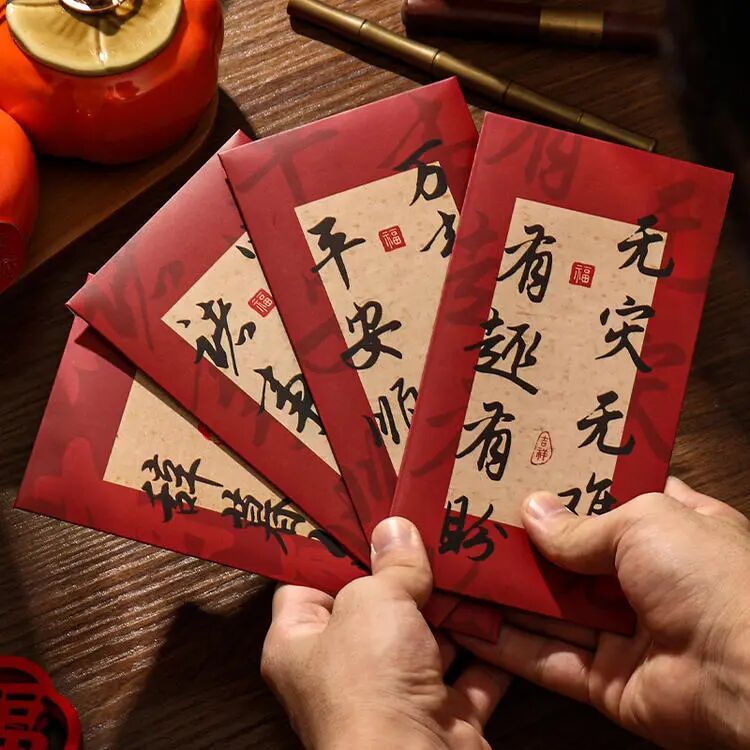 无灾无难
有趣有盼
福
吉祥
万
平安顺
福
福
辞暮
福